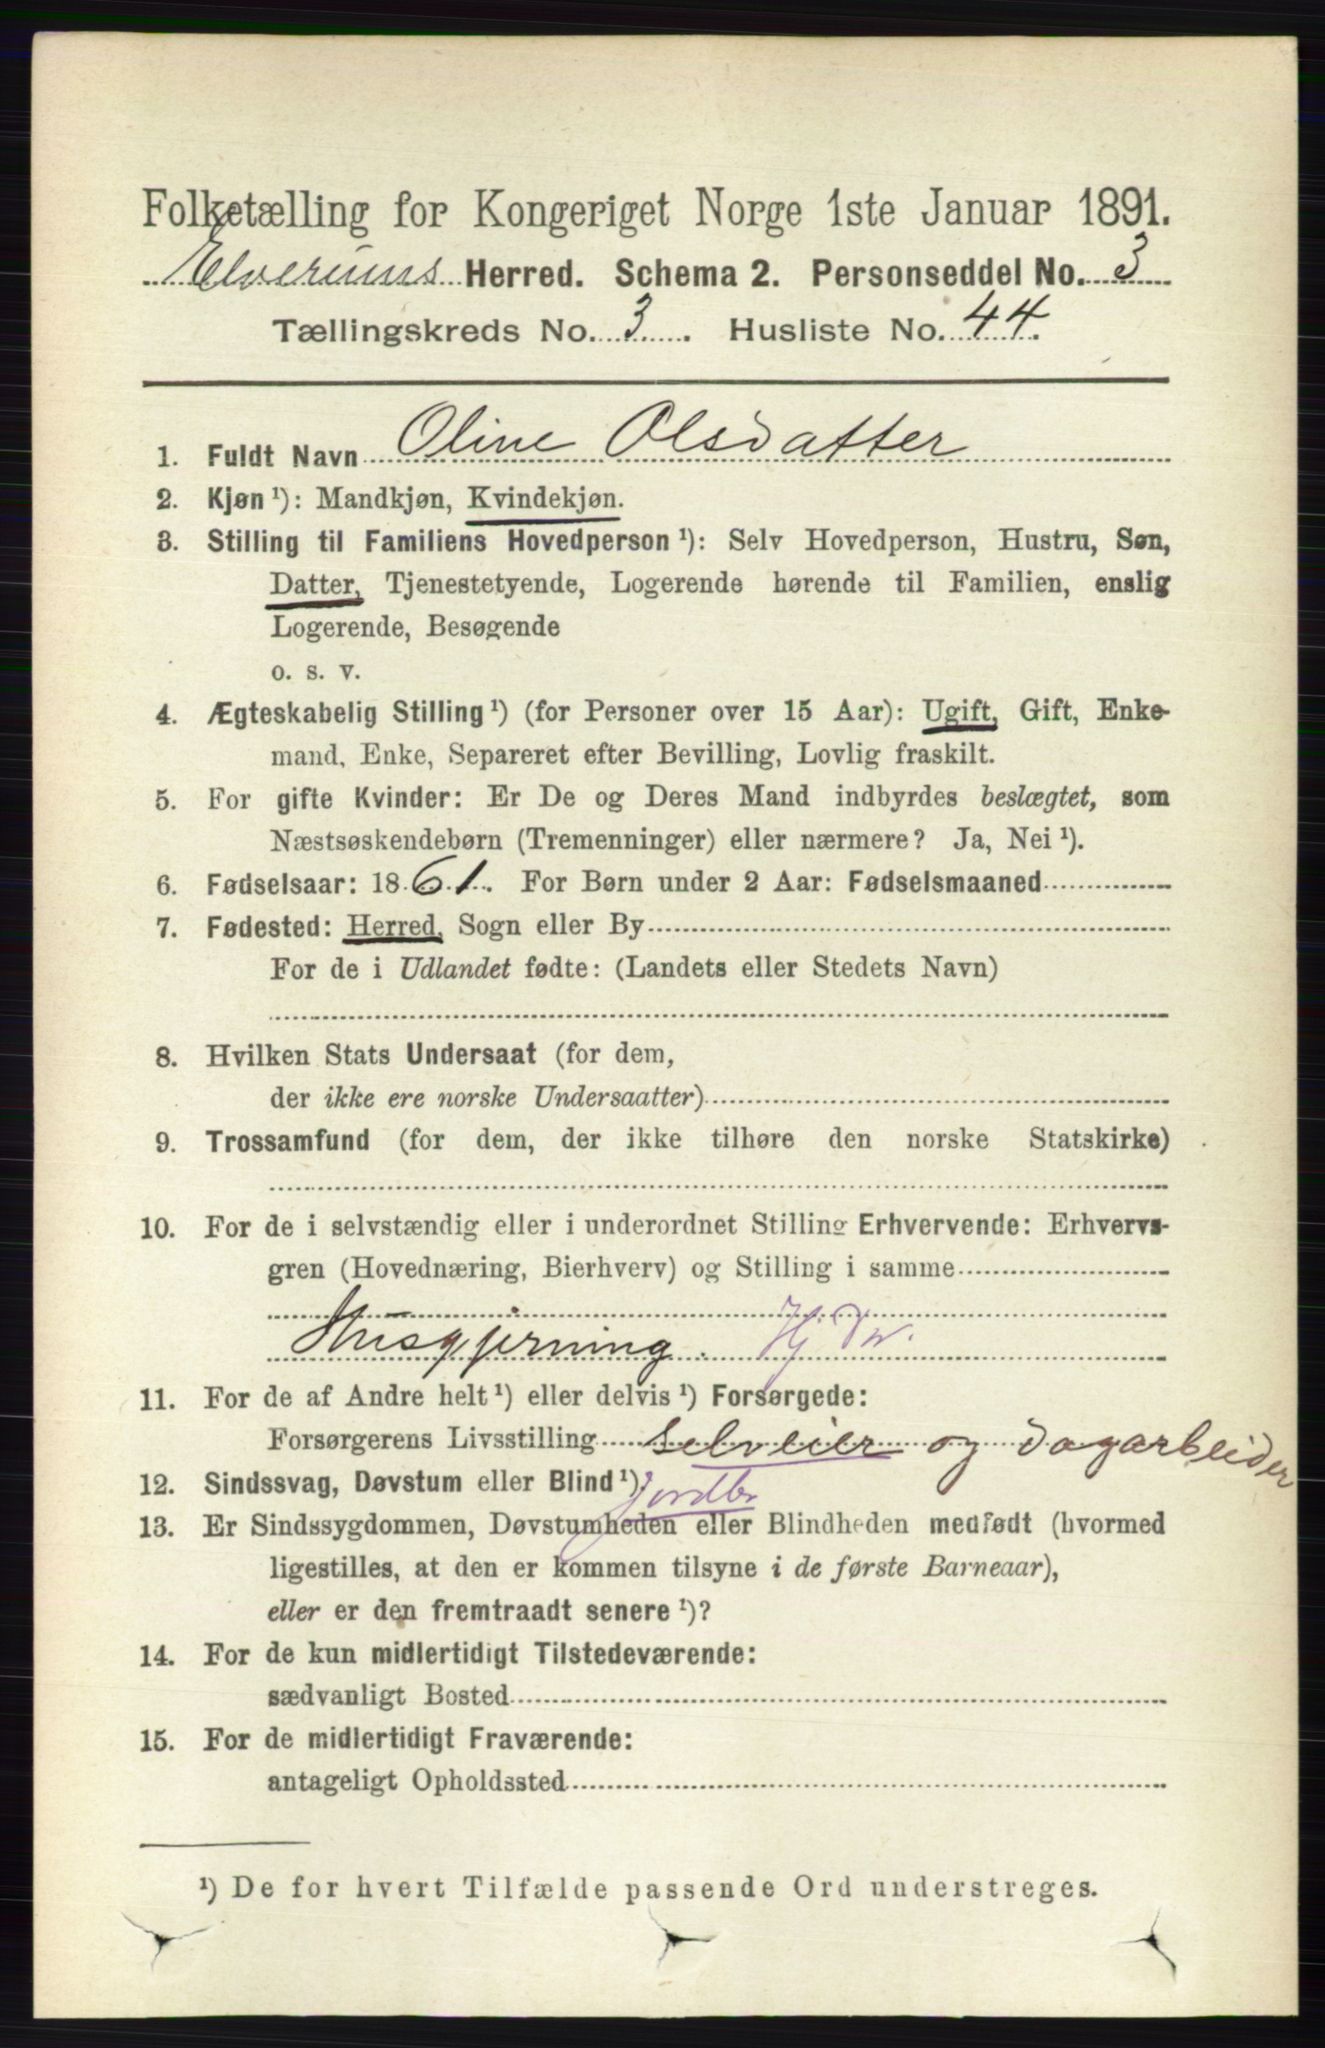 Folketælling for Kongeriget Norge 1ste Januar 1891.
Elverums Herred. Schema 2. Personseddel No. 3
Tællingskreds No. 3. Husliste No. 44.
1. Fuldt Navn Oline Olsdatter
2. Kjøn ¹): Mandkjøn, Kvindekjøn.
3. Stilling til Familiens Hovedperson ¹): Selv Hovedperson, Hustru, Søn,
Datter, Tjenestetyende, Logerende hørende til Familien, enslig
Logerende, Besøgende
o. s. v.
4. Ægteskabelig Stilling ¹) (for Personer over 15 Aar): Ugift, Gift, Enke-
mand, Enke, Separeret efter Bevilling, Lovlig fraskilt.
5. For gifte Kvinder: Er De og Deres Mand indbyrdes beslægtet, som
Næstsøskendebørn (Tremenninger) eller nærmere? Ja, Nei ¹).
6. Fødselsaar: 1861. For Børn under 2 Aar: Fødselsmaaned
7. Fødested: Herred, Sogn eller By
For de i Udlandet fødte: (Landets eller Stedets Navn)
8. Hvilken Stats Undersaat (for dem,
der ikke ere norske Undersaatter)
9. Trossamfund (for dem, der ikke tilhøre den norske Statskirke)
10. For de i selvstændig eller i underordnet Stilling Erhvervende: Erhvervs-
gren (Hovednæring, Bierhverv) og Stilling i samme
Husgjerning. Hj. Dv.
11. For de af Andre helt ¹) eller delvis ¹) Forsørgede:
Forsørgerens Livsstilling selveier og dagarbeider
12. Sindssvag, Døvstum eller Blind ¹). Jordbr
13. Er Sindssygdommen, Døvstumheden eller Blindheden medfødt (hvormed
ligestilles, at den er kommen tilsyne i de første Barneaar),
eller er den fremtraadt senere ¹)?
14. For de kun midlertidigt Tilstedeværende:
sædvanligt Bosted
15. For de midlertidigt Fraværende:
antageligt Opholdssted
¹) De for hvert Tilfælde passende Ord understreges.